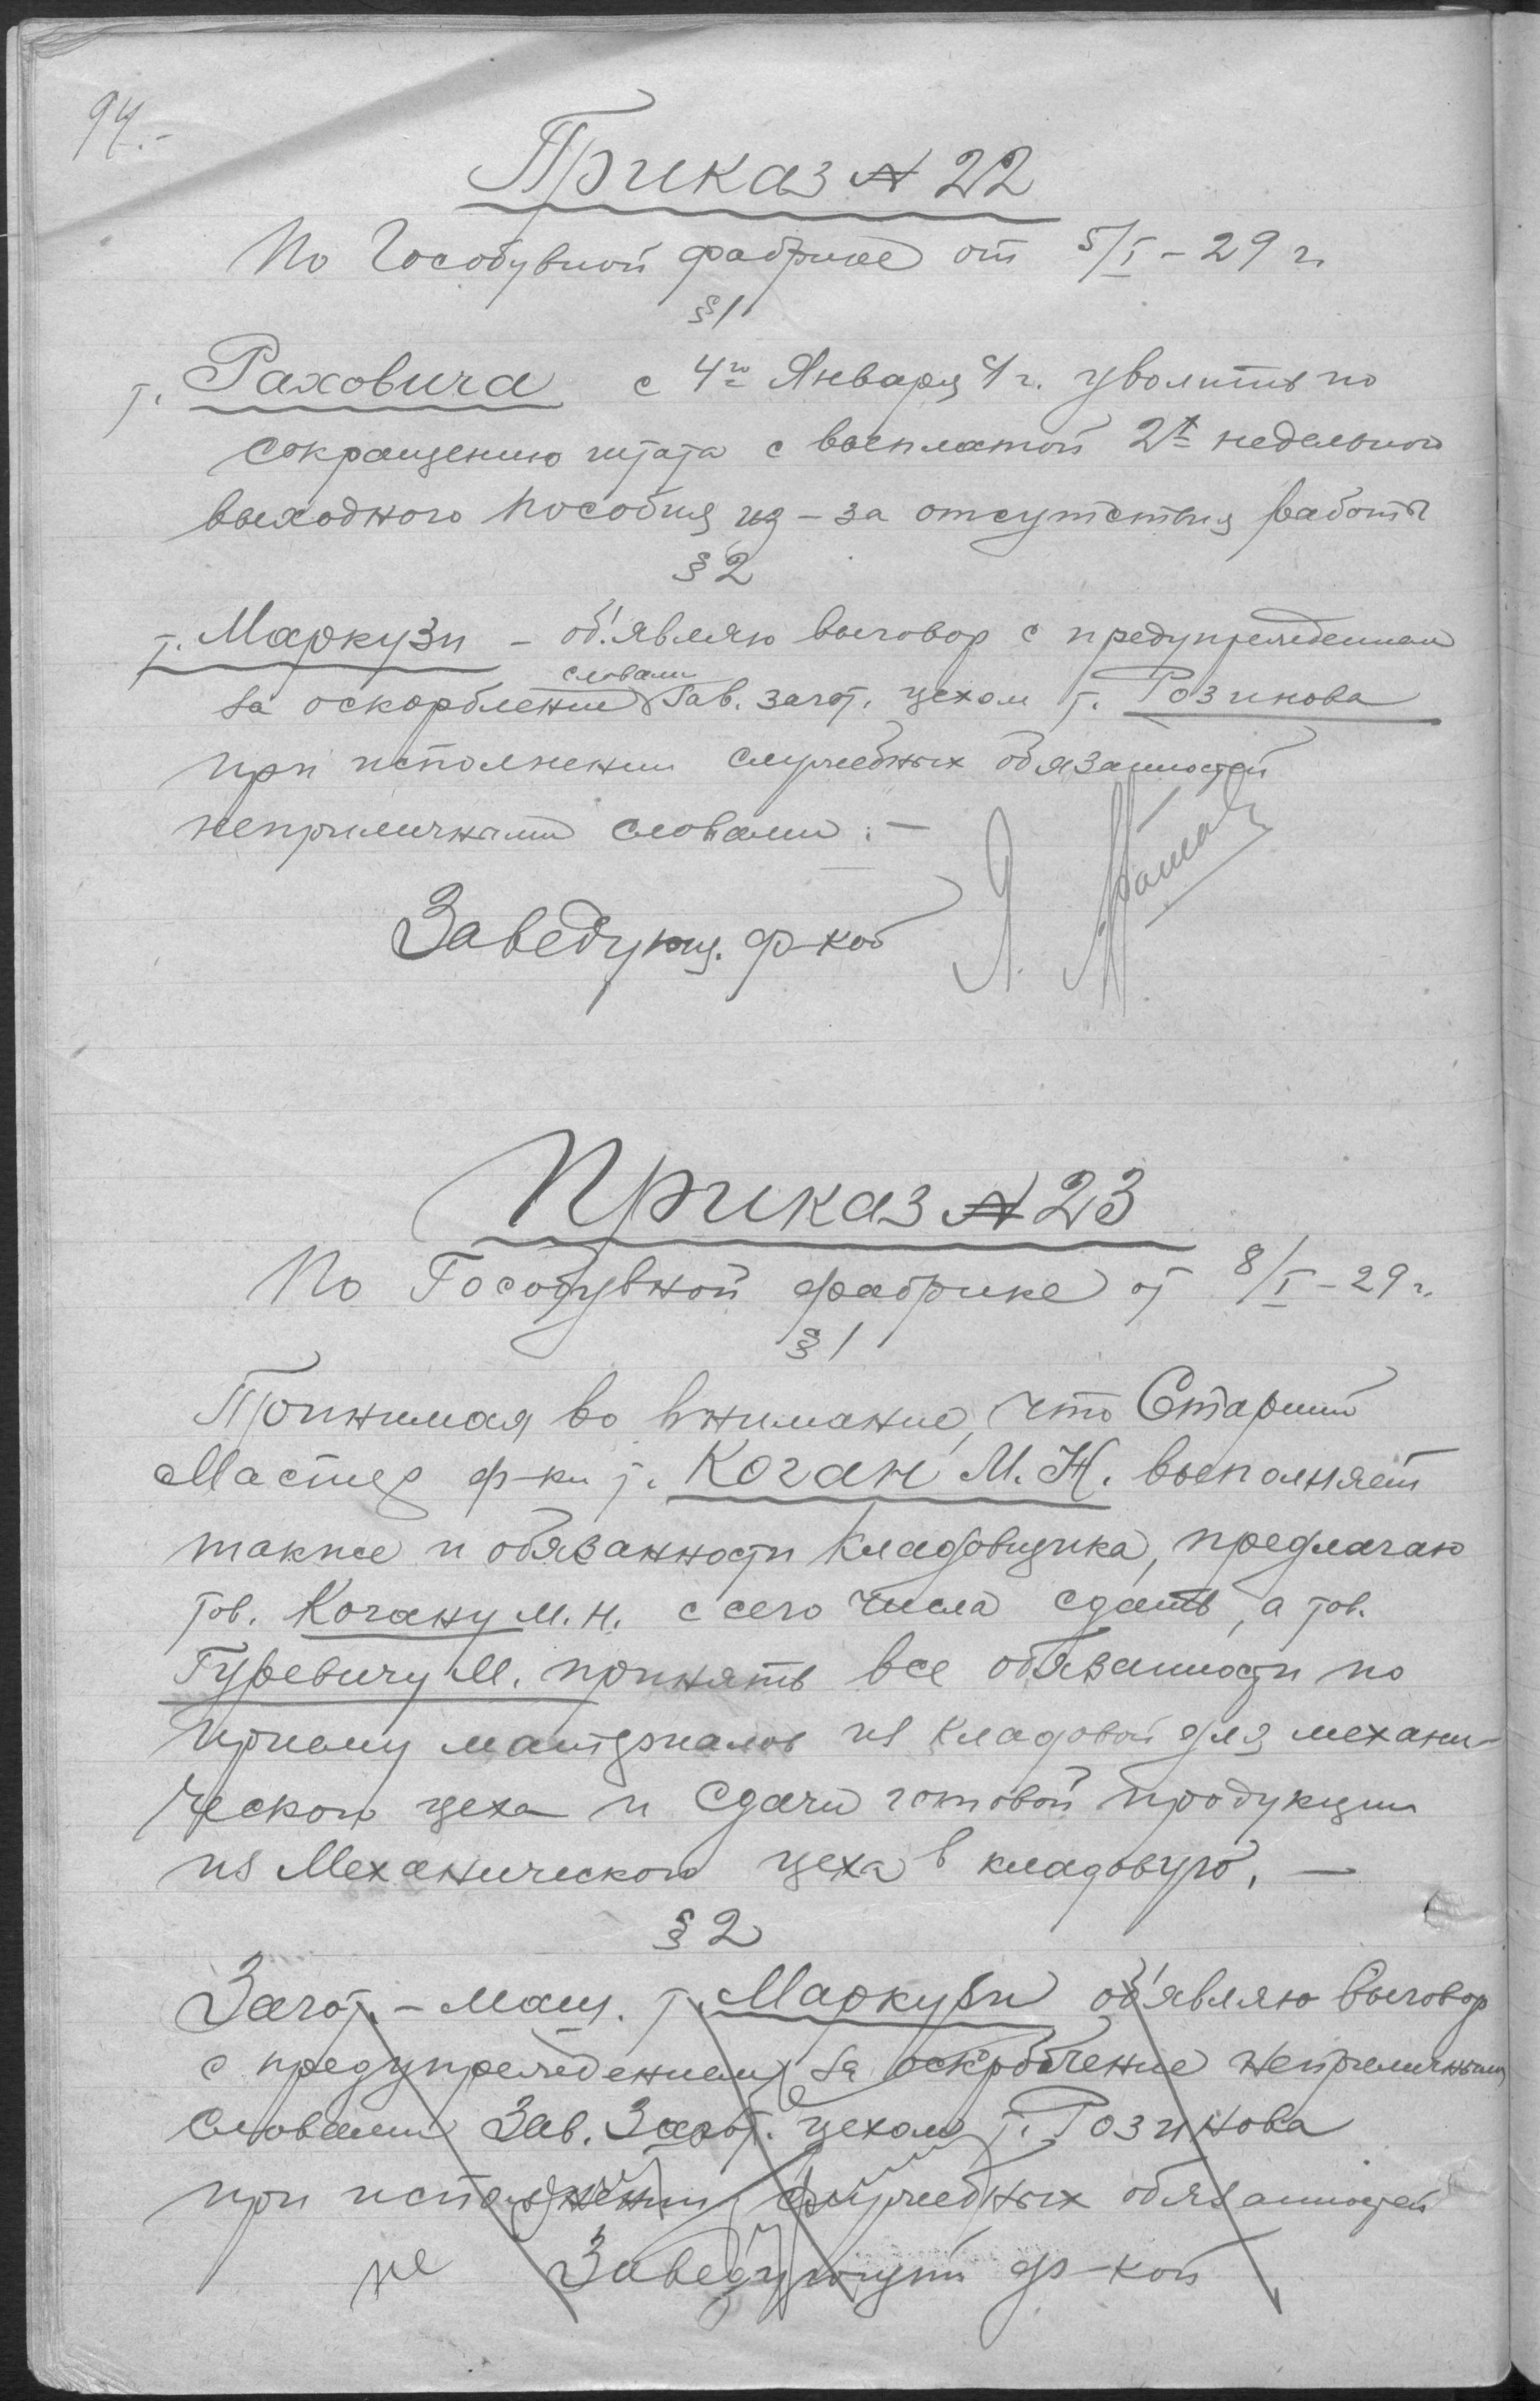 94.-
Приказ № 22
По Гособувной фабрике от 5/I - 29 г.
§ 1
т. Раховича с 4го Января с/г. уволить по
сокращению штата с выплатой 2х недельного
выходного пособия из-за отсутствия работы
§ 2
т. Маркузи - об'являю выговор с предупреждением
словами
за оскорбление Зав. загот. цехом т. Розинова
при исполнении служебных обязанностей
неприличными словами. -
Заведующ. ф-кой Я.
Приказ № 23
По Гособувной фабрике от 8/I - 29 г.
§ 1
Принимая во внимание, что Старший
Мастер ф-ки т. Коган М. Н. выполняет
также и обязанности кладовщика, предлагаю
тов. Когану М. Н. с сего числа сдать, а тов.
Гуревичу М. принять все обязанности по
приему материалов из кладовой для механи-
ческого цеха и сдачи готовой продукции
из Механического цеха в кладовую. -
§ 2
Загот. - маш. т. Маркузи об'являю выговор
с предупреждением за оскорбление неприличными
словами Зав. Загот. цехом т. Розинова
при исполнении служебных обязанностей
Заведующий ф-кой